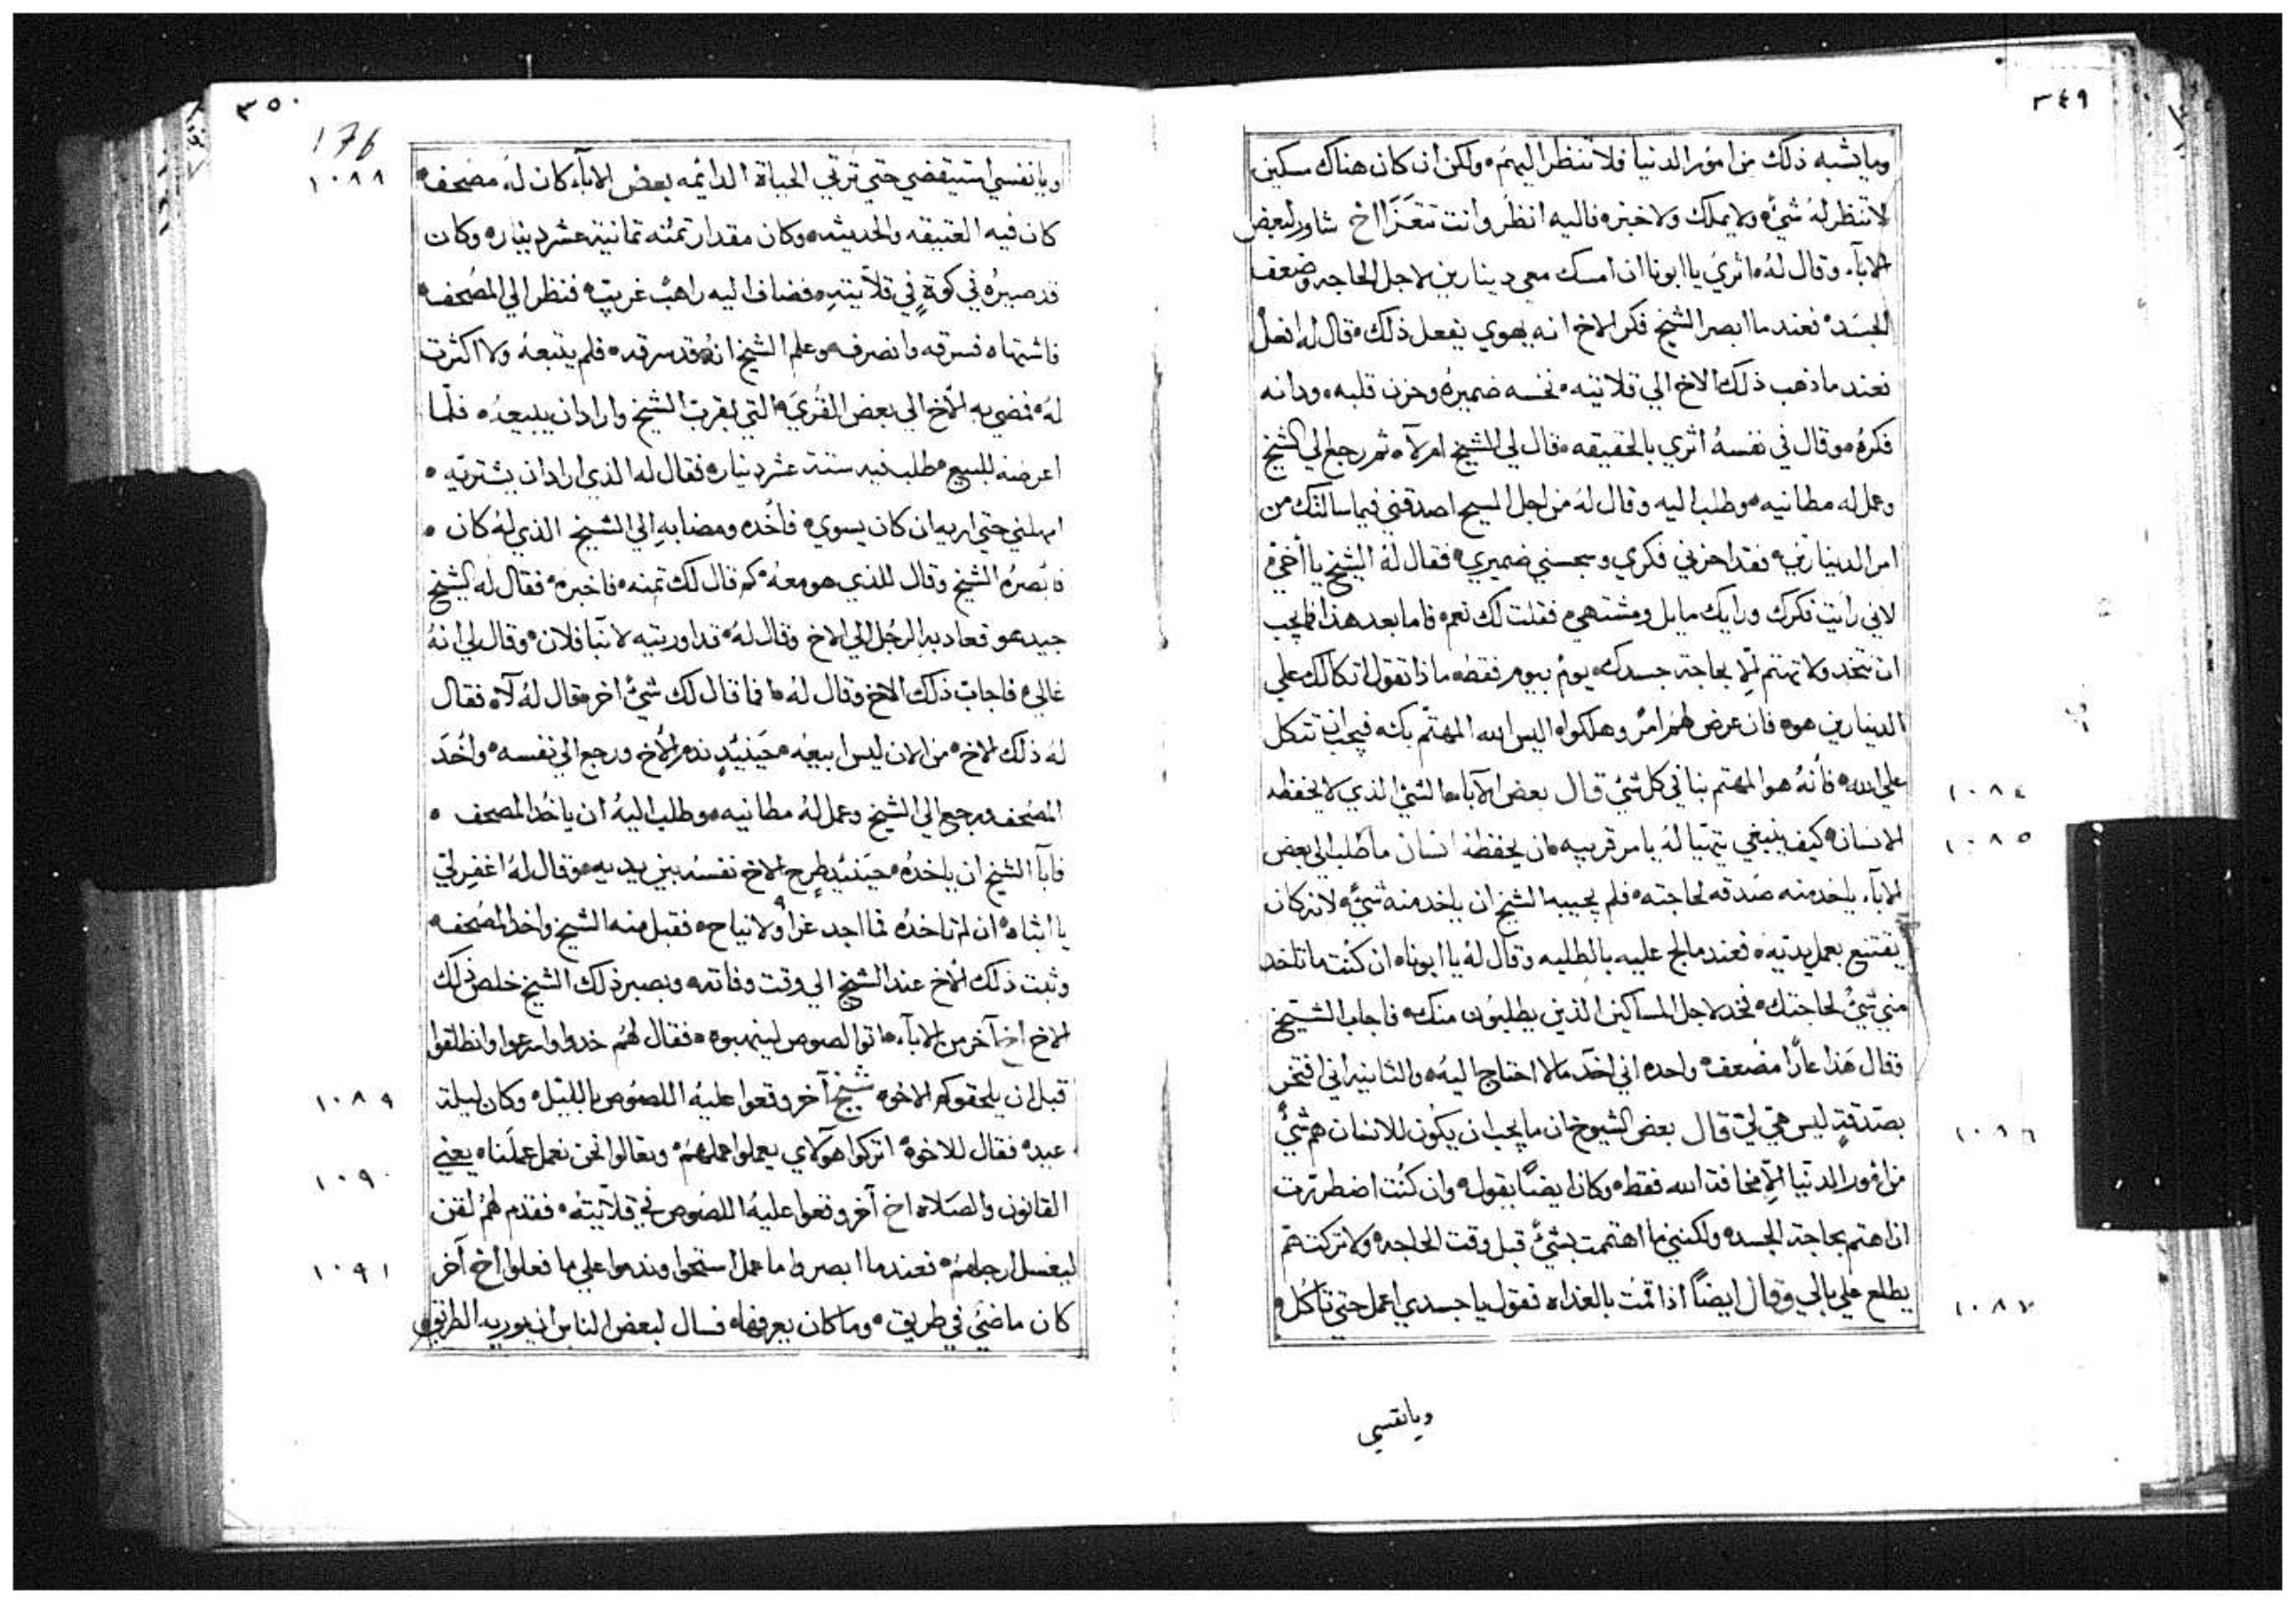 ٣٤٩
وما يشبه ذلك من امور الدنيا فلا تنظر اليهم ولكن ان كان هناك مسكين
لا تنظر له شيء ولا يملك ولا خبزه فاليه انظر وانت تتعزا اخ شاور لبعض
الابآء وقال له اثري يا ابونا ان امسك معي دينارين لاجل الحاجه وضعف
الجسد فعند ما ابصر الشيخ فكر الاخ انه يهوي يفعل ذلك قال له افعل
فعند ما ذهب ذلك الاخ الي قلاتيه نخسه ضميره وحزن قلبه ودانه
فكره وقال في نفسه اثري بالحقيقه قال لي الشيخ ام لآ ثم رجع الي الشيخ
وعمل له مطانيه وطلب اليه وقال له من اجل المسيح اصدقني فيما سالتك من
امر الدينارين فقد احزني فكري وسجسني ضميري فقال له الشيخ يا أخي
لاني رايت فكرك ورايك مايل ومشتهي فقلت لك نعم فاما بعد هذا فما يجب
ان تتخد ولا تهتم الا بحاجة جسدك يوم بيوم فقط ماذا تقول اتكالك علي
الدينارين هو فان عرض لهم امر وهلكوا اليس الله المهتم بك فيجب ان تتكل
علي الله فأنه هو المهتم بنا في كل شئ قال بعض الآباء الشئ الذي لا يحفظه
١٠٨٤
الانسان كيف ينبغي يتهيا له يامر قريبه ان يحفظه انسان ما طلب الي بعض
١٠٨٥
الابآء ياخد منه صدقه لحاجته فلم يجيبه الشيخ ان ياخد منه شيء لانه كان
يقتنع بعمل يديه فعند ما لج عليه بالطلبه وقال له يا ابونا ان كنت ما تاخد
مني شئ لحاجتك فخد لاجل المساكين الذين يطلبون منك فاجاب الشيخ
وقال هذا عارا مضعف واحده اني اخد ما لا احتاج اليه والثانيه اني افتخر
بصدقة ليس هي لي قال بعض الشيوخ ان ما يجب ان يكون للانسان هم شئ
١٠٨٦
من امور الدنيا الا مخافة الله فقط وكان ايضا يقول وان كنت اضطررت
ان اهتم بحاجة الجسد ولكنني ما اهتمت بشئ قبل وقت الحاجه ولا تركته
يطلع علي بالي وقال ايضا اذا قمت بالغداه فقول يا جسدي اعمل حتي تاكل
١٠٨٧
ويا نفسي
٣٥٠
176
ويا نفسي استيقضي حتي ترثي الحياة الدائمه بعض الابآء كان له مصحف
١٠٨٨
كان فيه العتيقه والحديثه وكان مقدار تمنه تمانية عشر دينار وكان
قد صيره في كوة في قلايته فضاف اليه راهب غريب فنظر الي المصحف
فاشتهاه فسرقه وانصرف وعلم الشيخ انه قد سرقه فلم يتبعه ولا اكترت
له فمضي به الاخ الي بعض القري التي بقرب الشيخ واراد ان يبيعه فلما
اعرضه للبيع طلب فيه ستة عشر دينار فقال له الذي اراد ان يشتريه
امهلني حتي اريه ان كان يسوي فاخده ومضا به الي الشيخ الذي له كان
فابصره الشيخ وقال للذي هو معه كم قال لك تمنه فاخبره فقال له الشيخ
جيد هو فعاد به الرجل الي الاخ وقال له قد اوريته لآنبا فلان وقال لي انه
غالي فاجاب ذلك الاخ وقال له فما قال لك شئ اخر قال له لآ فقال
له ذلك الاخ من الان ليس ابيعه حينيد ندم الاخ ورجع الي نفسه واخد
المصحف ورجع الي الشيخ وعمل له مطانيه وطلب اليه ان ياخد المصحف
فابا الشيخ ان ياخده حينيد طرح الاخ نفسه بين يديه وقال له اغفر لي
يا ابتاه ان لم تاخده فما اجد عزا ولا نياح فقبل منه الشيخ واخد المصحف
وثبت ذلك الاخ عند الشيخ الي وقت وفاته وبصبر ذلك الشيخ خلص ذلك
الاخ اخآ آخر من الابآء اتوا لصوص لينهبوه فقال لهم خدوا واسرعوا وانطلقوا
قبل ان يلحقوكم الاخوه شيخ آخر وقعوا عليه اللصوص بالليل وكان ليلة
١٠٨٩
عيد فقال للاخوه اتركوا هولاي يعملوا عملهم وتعالوا نحن نعمل عملنا يعني
القانون والصلاه اخ آخر وقعوا عليه اللصوص في قلايته فقدم لهم لقن
١٠٩٠
ليغسل ارجلهم فعند ما ابصروا ما عمل استحوا وندموا علي ما فعلوا اخ آخر
١٠٩١
كان ماضي في طريق وما كان يعرفها فسال لبعض الناس ان يوريه الطريق